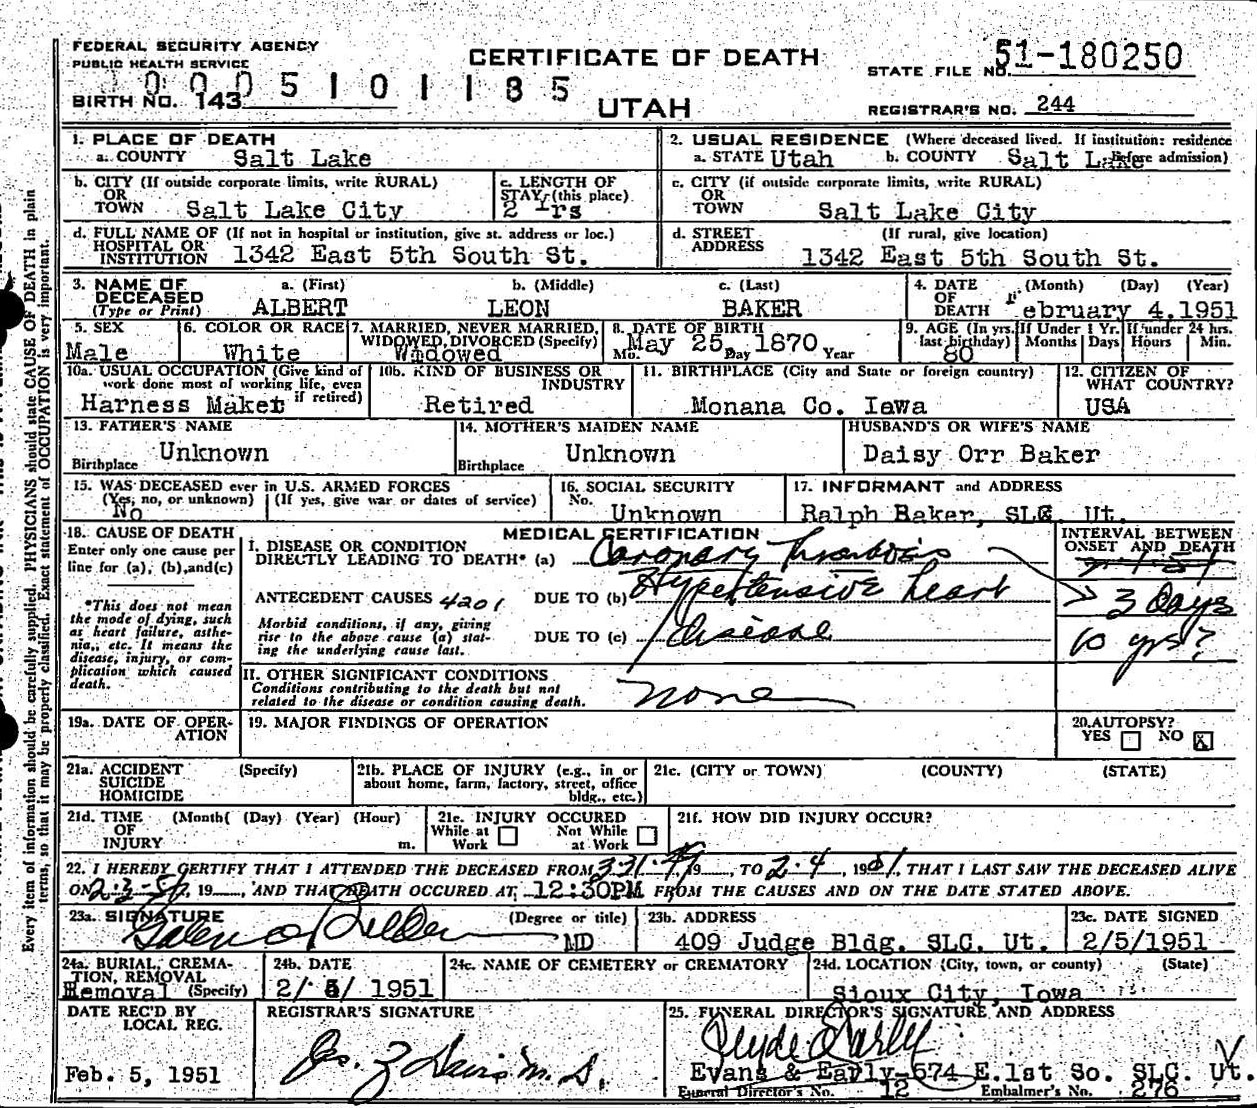 FEDERAL SECURITY AGENCY
PUBLIC HEALTH SERVICE
CERTIFICATE OF DEATH
STATE FILE NO. 51-180250
BIRTH NO. 143
UTAH
REGISTRAR'S NO. 244
1. PLACE OF DEATH
a. COUNTY Salt Lake
2. USUAL RESIDENCE (Where deceased lived. If institution: residence
a. STATE Utah b. COUNTY Salt Lake before admission)
b. CITY (If outside corporate limits, write RURAL)
OR
TOWN Salt Lake City
c. LENGTH OF
STAY (this place)
2 Yrs
c. CITY (if outside corporate limits, write RURAL)
OR
TOWN Salt Lake City
d. FULL NAME OF (If not in hospital or institution, give st. address or loc.)
HOSPITAL OR
INSTITUTION 1342 East 5th South St.
d. STREET (If rural, give location)
ADDRESS
1342 East 5th South St.
3. NAME OF a. (First) b. (Middle) c. (Last)
DECEASED
(Type or Print) ALBERT LEON BAKER
4. DATE (Month) (Day) (Year)
OF
DEATH February 4, 1951
5. SEX
Male
6. COLOR OR RACE
White
7. MARRIED, NEVER MARRIED,
WIDOWED, DIVORCED (Specify)
Widowed
8. DATE OF BIRTH
May 25, 1870
Mo. Day Year
9. AGE (In yrs. last birthday)
80
If Under 1 Yr.
Months Days
If under 24 hrs.
Hours Min.
10a. USUAL OCCUPATION (Give kind of
work done most of working life, even
if retired)
Harness Maker
10b. KIND OF BUSINESS OR
INDUSTRY
Retired
11. BIRTHPLACE (City and State or foreign country)
Monana Co. Iowa
12. CITIZEN OF
WHAT COUNTRY?
USA
13. FATHER'S NAME
Unknown
Birthplace
14. MOTHER'S MAIDEN NAME
Unknown
Birthplace
HUSBAND'S OR WIFE'S NAME
Daisy Orr Baker
15. WAS DECEASED ever in U.S. ARMED FORCES
(Yes, no, or unknown) (If yes, give war or dates of service)
No
16. SOCIAL SECURITY
No.
Unknown
17. INFORMANT and ADDRESS
Ralph Baker, SLC Ut.
18. CAUSE OF DEATH
Enter only one cause per
line for (a), (b), and (c)
*This does not mean
the mode of dying, such
as heart failure, asthe-
nia, etc. It means the
disease, injury, or com-
plication which caused
death.
MEDICAL CERTIFICATION
I. DISEASE OR CONDITION
DIRECTLY LEADING TO DEATH* (a) Coronary Thrombosis
ANTECEDENT CAUSES 4201 DUE TO (b) Hypertensive heart
Morbid conditions, if any, giving
rise to the above cause (a) stat-
ing the underlying cause last.
DUE TO (c) disease
INTERVAL BETWEEN
ONSET AND DEATH
3 Days
10 yrs?
II. OTHER SIGNIFICANT CONDITIONS
Conditions contributing to the death but not
related to the disease or condition causing death.
none
19a. DATE OF OPER-
ATION
19. MAJOR FINDINGS OF OPERATION
20. AUTOPSY?
YES NO X
21a. ACCIDENT (Specify)
SUICIDE
HOMICIDE
21b. PLACE OF INJURY (e.g., in or
about home, farm, factory, street, office
bldg., etc.)
21c. (CITY or TOWN) (COUNTY) (STATE)
21d. TIME (Month( (Day) (Year) (Hour)
OF
INJURY m.
21e. INJURY OCCURED
While at Work Not While at Work
21f. HOW DID INJURY OCCUR?
22. I HEREBY CERTIFY THAT I ATTENDED THE DECEASED FROM 3-21-49 19 , TO 2-4, 1951, THAT I LAST SAW THE DECEASED ALIVE
ON 2-3-51, 19 , AND THAT DEATH OCCURED AT 12:30PM FROM THE CAUSES AND ON THE DATE STATED ABOVE.
23a. SIGNATURE (Degree or title)
MD
23b. ADDRESS
409 Judge Bldg. SLC. Ut.
23c. DATE SIGNED
2/5/1951
24a. BURIAL, CREMA-
TION, REMOVAL
Removal (Specify)
24b. DATE
2/ 5/ 1951
24c. NAME OF CEMETERY or CREMATORY
24d. LOCATION (City, town, or county) (State)
Sioux City, Iowa
DATE REC'D BY
LOCAL REG.
Feb. 5, 1951
REGISTRAR'S SIGNATURE
25. FUNERAL DIRECTOR'S SIGNATURE AND ADDRESS
Evans & Early-574 E.1st So. SLC. Ut.
Funeral Director's No. 12 Embalmer's No. 276
Every item of information should be carefully supplied. PHYSICIANS should state CAUSE OF DEATH in plain
terms, so that it may be properly classified. Exact statement of OCCUPATION is very important.